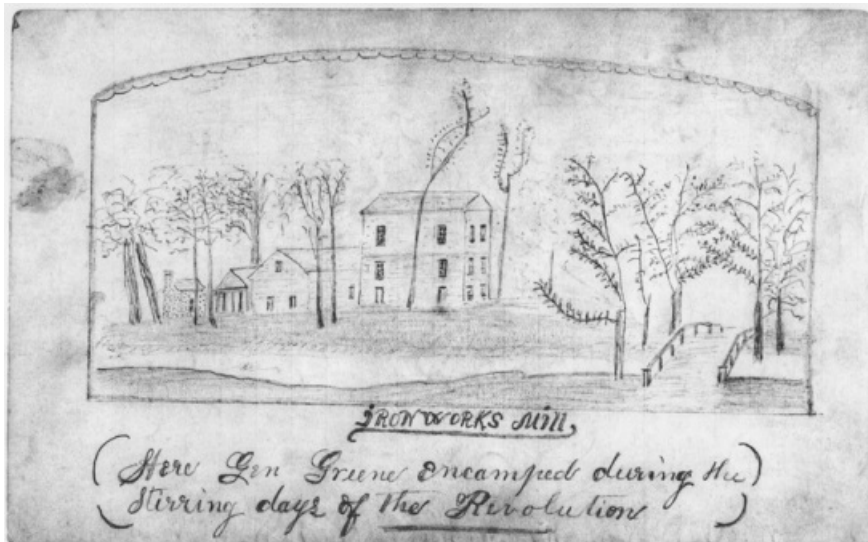 IRONWORKS Mill
(Here Gen Greene encamped during the)
(Stirring days of the Revolution)